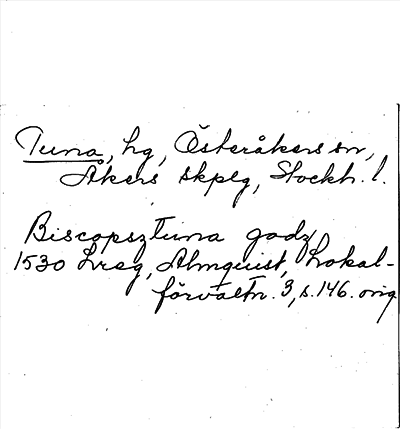 Tuna, hg, Österåkers sn,
Åkers skplg, Stockh. l.
Biscopsztuna godz
1530 Lreg, Almquist, Lokal-
förvaltn. 3, s. 146. orig